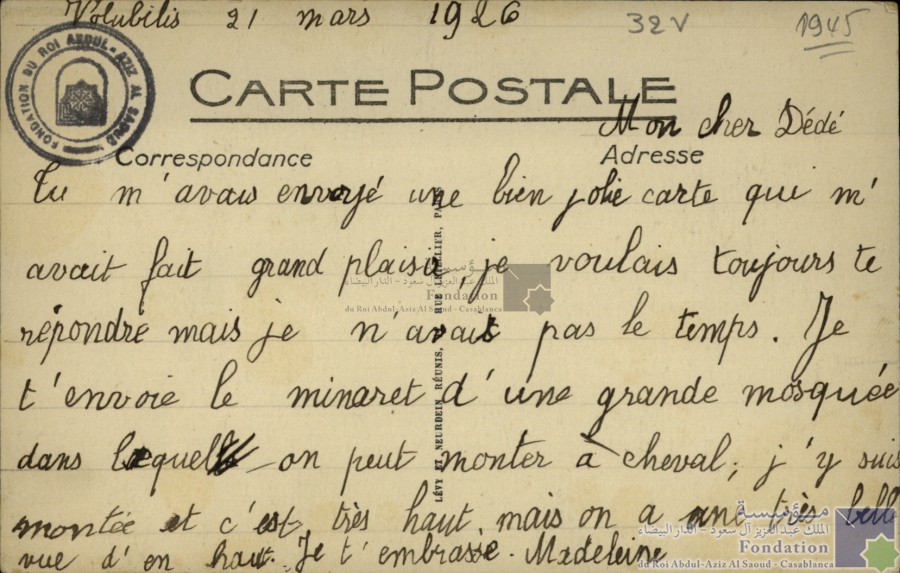 Volubilis 21 mars 1926
32V
1945
FONDATION DU ROI ABDUL-AZIZ AL SAOUD
CARTE POSTALE
Mon cher Dédé
Correspondance
Adresse
Tu m'avais envoyé une bien jolie carte qui m'
avait fait grand plaisir, je voulais toujours te
répondre mais je n'avais pas le temps. Je
t'envoie le minaret d'une grande mosquée
dans lequel on peut monter à cheval, j'y suis
montée et c'est très haut, mais on a une très belle
vue d'en haut. Je t'embrasse. Madeleine
LÉVY ET NEURDEIN RÉUNIS, RUE LETELLIER, PARIS
مؤسسة
الملك عبد العزيز آل سعود - الدار البيضاء
Fondation
du Roi Abdul-Aziz Al Saoud - Casablanca
مؤسسة
الملك عبد العزيز آل سعود - الدار البيضاء
Fondation
du Roi Abdul-Aziz Al Saoud - Casablanca